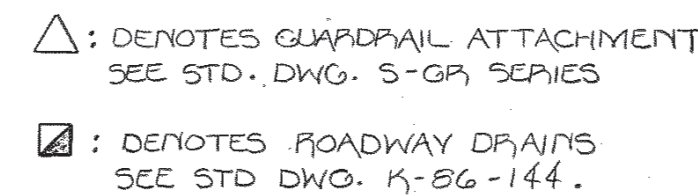 : DENOTES GUARDRAIL ATTACHMENT
SEE STD. DWG. S-GR SERIES
: DENOTES ROADWAY DRAINS
SEE STD DWG. K-86-144.